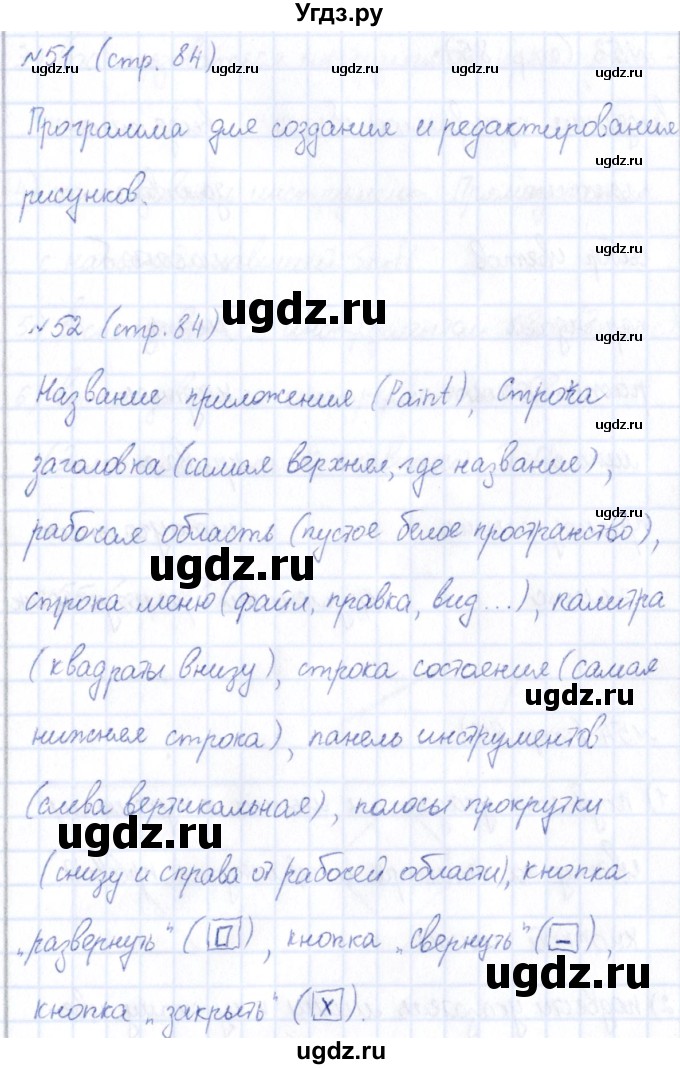 Угдз.ру
№51 (стр. 84)
ugdz.ru ugdz.ru ugdz.ru ugdz.ru
Программа для создания и редактирования
ugdz.ru
рисунков.
ugdz.ru
ugdz.ru
№52 (стр. 84)
ugdz.ru
Название приложения (Paint), Строка
ugdz.ru
заголовка (самая верхняя, где название),
ugdz.ru
рабочая область (пустое белое пространство),
ugdz.ru
строка меню (файл, правка, вид...), палитра
ugdz.ru
(квадраты внизу), строка состояния (самая
ugdz.ru
нижняя строка), панель инструментов
(слева вертикальная), полосы прокрутки
ugdz.ru
(снизу и справа от рабочей области), кнопка
„развернуть“ (□), кнопка „свернуть“ (–),
ugdz.ru
кнопка „закрыть“ (x).
ugdz.ru